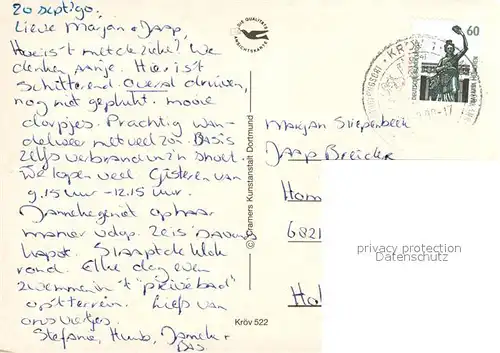 20 sept '90.
Lieve Marjan + Jaap,
Hoe is 't met de zieke? We
denken aan je. Hier is 't
schitterend. Overal druiven,
nog niet geplukt. mooie
dorpjes. Prachtig wan-
delweer met veel zon. BAS is
zelfs verbrand in z'n snoet.
We lopen veel Gisteren van
9.15 uur - 12.15 uur.
Janneke geniet op haar
manier volop. Ze is
kapot. Slaapt de klok
rond. Elke dag even
zwemmen in 't "privébad"
op 't terrein. Liefs van
ons vijfjes.
Stefanie, Huub, Janneke +
BAS
DIE QUALITÄTS
ANSICHTSKARTE
© Cramers Kunstanstalt Dortmund
Kröv 522
60
DEUTSCHE BUNDESPOST
KRÖV
Marjan Sliepenbeek
Jaap Breider
Hom
6821
Hol
privacy protection
Datenschutz